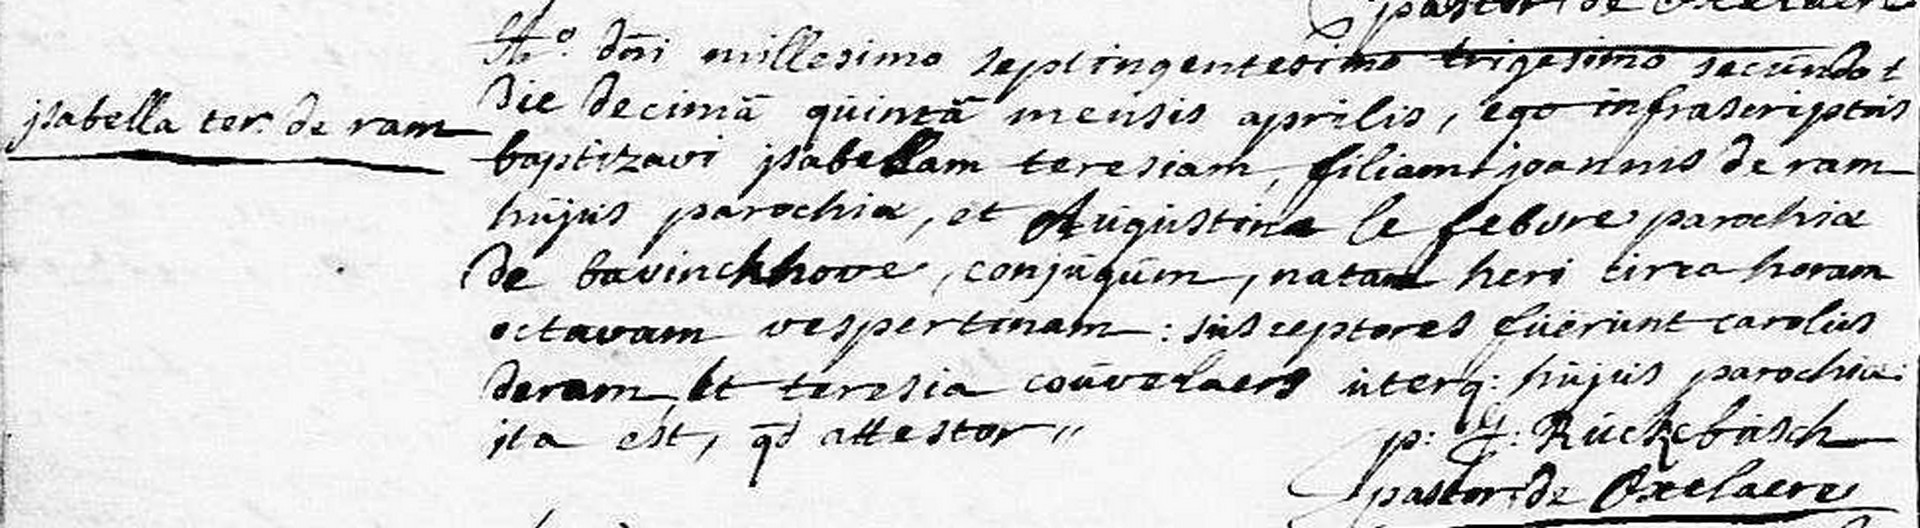 pastor de Oxelaere
Ao. dni millesimo septingentesimo trigesimo secundo
die decimâ quintâ mensis aprilis, ego infrascriptus
jsabella ter: de ram
baptizavi jsabellam teresiam, filiam joannis de ram
hujus parochiæ, et Augustinæ le febvre parochiæ
de bavinckhove, conjugum, natam heri circa horam
octavam vespertinam: susceptores fuerunt carolus
deram, et teresia couvelaers uterq: hujus parochiæ.
jta est, qd attestor"
p: J: Ruckebusch
pastor de Oxelaere